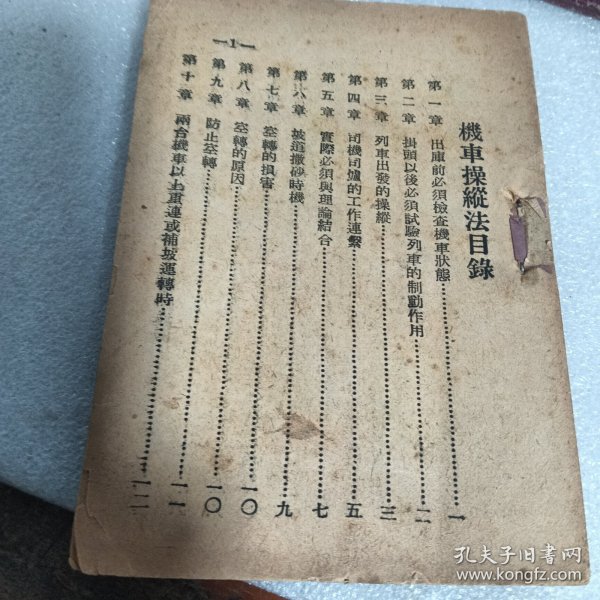 機車操縱法目錄
第一章 出庫前必須檢查機車狀態……一
第二章 掛頭以後必須試驗列車的制動作用……二
第三章 列車出發的操縱……三
第四章 司機司爐的工作連繫……五
第五章 實際必須與理論結合……七
第六章 坡道撒砂時機……九
第七章 空轉的損害……一〇
第八章 空轉的原因……一〇
第九章 防止空轉……一一
第十章 兩台機車以上重連或補坡運轉時……一二
—1—
孔夫子旧书网
www.kongfz.com